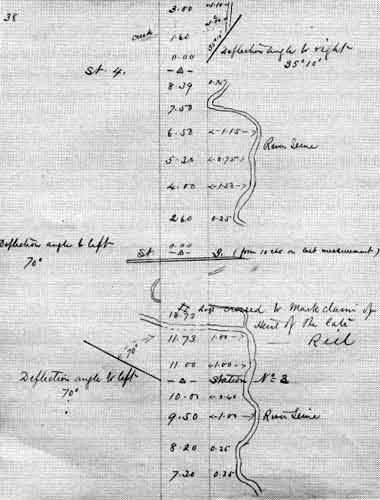 38
3.00
creek 1.60
0.00 Deflection angle to right
35°10'
St. 4. -Δ-
8.39 0.25
7.50
6.50 <-1.15-> River Seine
5.20 <-0.75->
4.00 <-1.50->
2.60 0.25
0.00
Deflection angle to left St -Δ- 3. (from 10 chs on last measurement)
70°
crossed to Mark claim of
Heirs of the late
12.72
Riel
70° 11.73 1.00->
11.00 <-1.00->
Deflection angle to left -Δ- Station No 3
70° 10.00 <-0.40
9.50 <-1.00-> River Seine
8.20 0.25
7.20 0.25